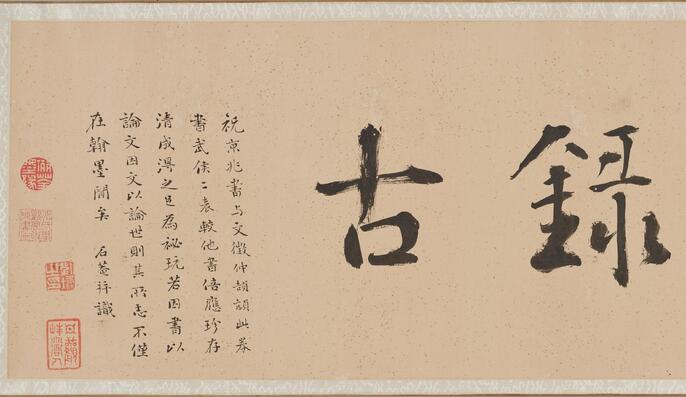 錄古
祝京兆書与文徵仲頡頏此摹
書武侯二表較他書倍應珍存
清成得之且為祕玩若因書以
論文因文以論世則其所志不僅
在翰墨間矣 石菴拜識